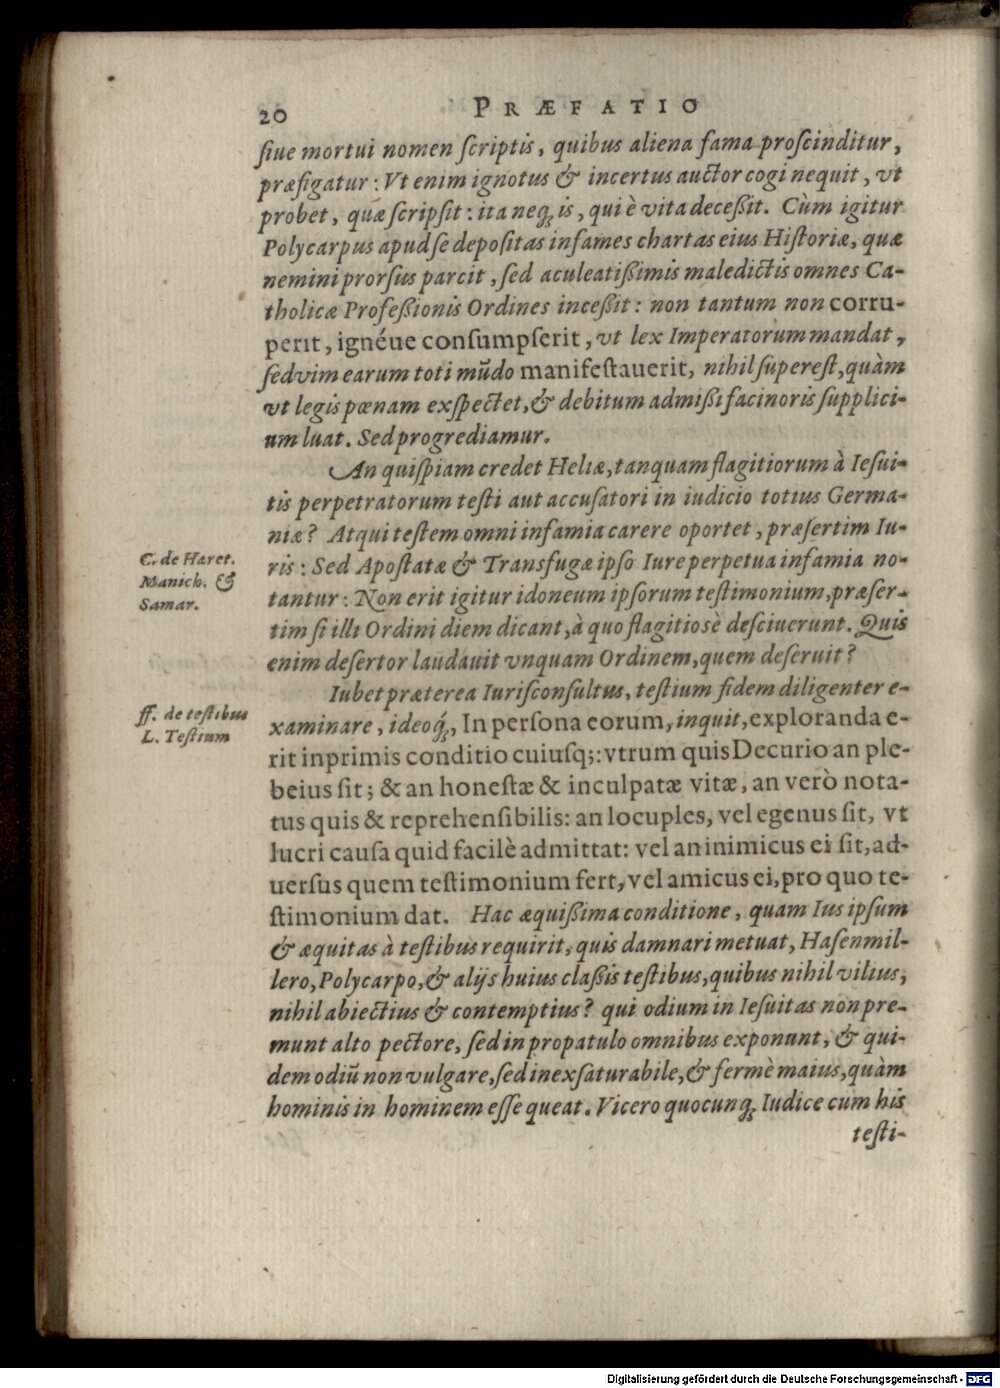 20 PRÆFATIO
ſiue mortui nomen ſcriptis, quibus aliena fama proſcinditur,
præfigatur: Vt enim ignotus & incertus auctor cogi nequit, vt
probet, quæ ſcripſit: ita neq́; is, qui è vita deceßit. Cùm igitur
Polycarpus apud ſe depoſitas infames chartas eius Hiſtoriæ, quæ
nemini prorſus parcit, ſed aculeatißimis maledictis omnes Ca-
tholicæ Profeßionis Ordines inceßit: non tantum non corru-
perit, ignéue conſumpſerit, vt lex Imperatorum mandat,
ſed vim earum toti mũdo manifeſtauerit, nihil ſupereſt, quàm
vt legis pœnam exſpectet, & debitum admißi facinoris ſupplici-
um luat. Sed progrediamur.
An quiſpiam credet Heliæ, tanquam flagitiorum à Ieſui-
tis perpetratorum teſti aut accuſatori in iudicio totius Germa-
niæ? Atqui teſtem omni infamia carere oportet, præſertim Iu-
C. de Hæret.
Manich. &
Samar.
ris: Sed Apoſtatæ & Transfugæ ipſo Iure perpetua infamia no-
tantur: Non erit igitur idoneum ipſorum teſtimonium, præſer-
tim ſi illi Ordini diem dicant, à quo flagitiosè deſciuerunt. Quis
enim deſertor laudauit vnquam Ordinem, quem deſeruit?
Iubet præterea Iuriſconſultus, teſtium fidem diligenter e-
ff. de teſtibus
L. Teſtium
xaminare, ideoq́;, In perſona eorum, inquit, exploranda e-
rit inprimis conditio cuiuſq;: vtrum quis Decurio an ple-
beius ſit; & an honeſtæ & inculpatæ vitæ, an verò nota-
tus quis & reprehenſibilis: an locuples, vel egenus ſit, vt
lucri cauſa quid facilè admittat: vel an inimicus ei ſit, ad-
uerſus quem teſtimonium fert, vel amicus ei, pro quo te-
ſtimonium dat. Hac æquißima conditione, quam Ius ipſum
& æquitas à teſtibus requirit, quis damnari metuat, Haſenmil-
lero, Polycarpo, & alijs huius claßis teſtibus, quibus nihil vilius,
nihil abiectius & contemptius? qui odium in Ieſuitas non pre-
munt alto pectore, ſed in propatulo omnibus exponunt, & qui-
dem odiũ non vulgare, ſed inexſaturabile, & fermè maius, quàm
hominis in hominem eſſe queat. Vicero quocunq; Iudice cum his
teſti-
Digitalisierung gefördert durch die Deutsche Forschungsgemeinschaft - DFG